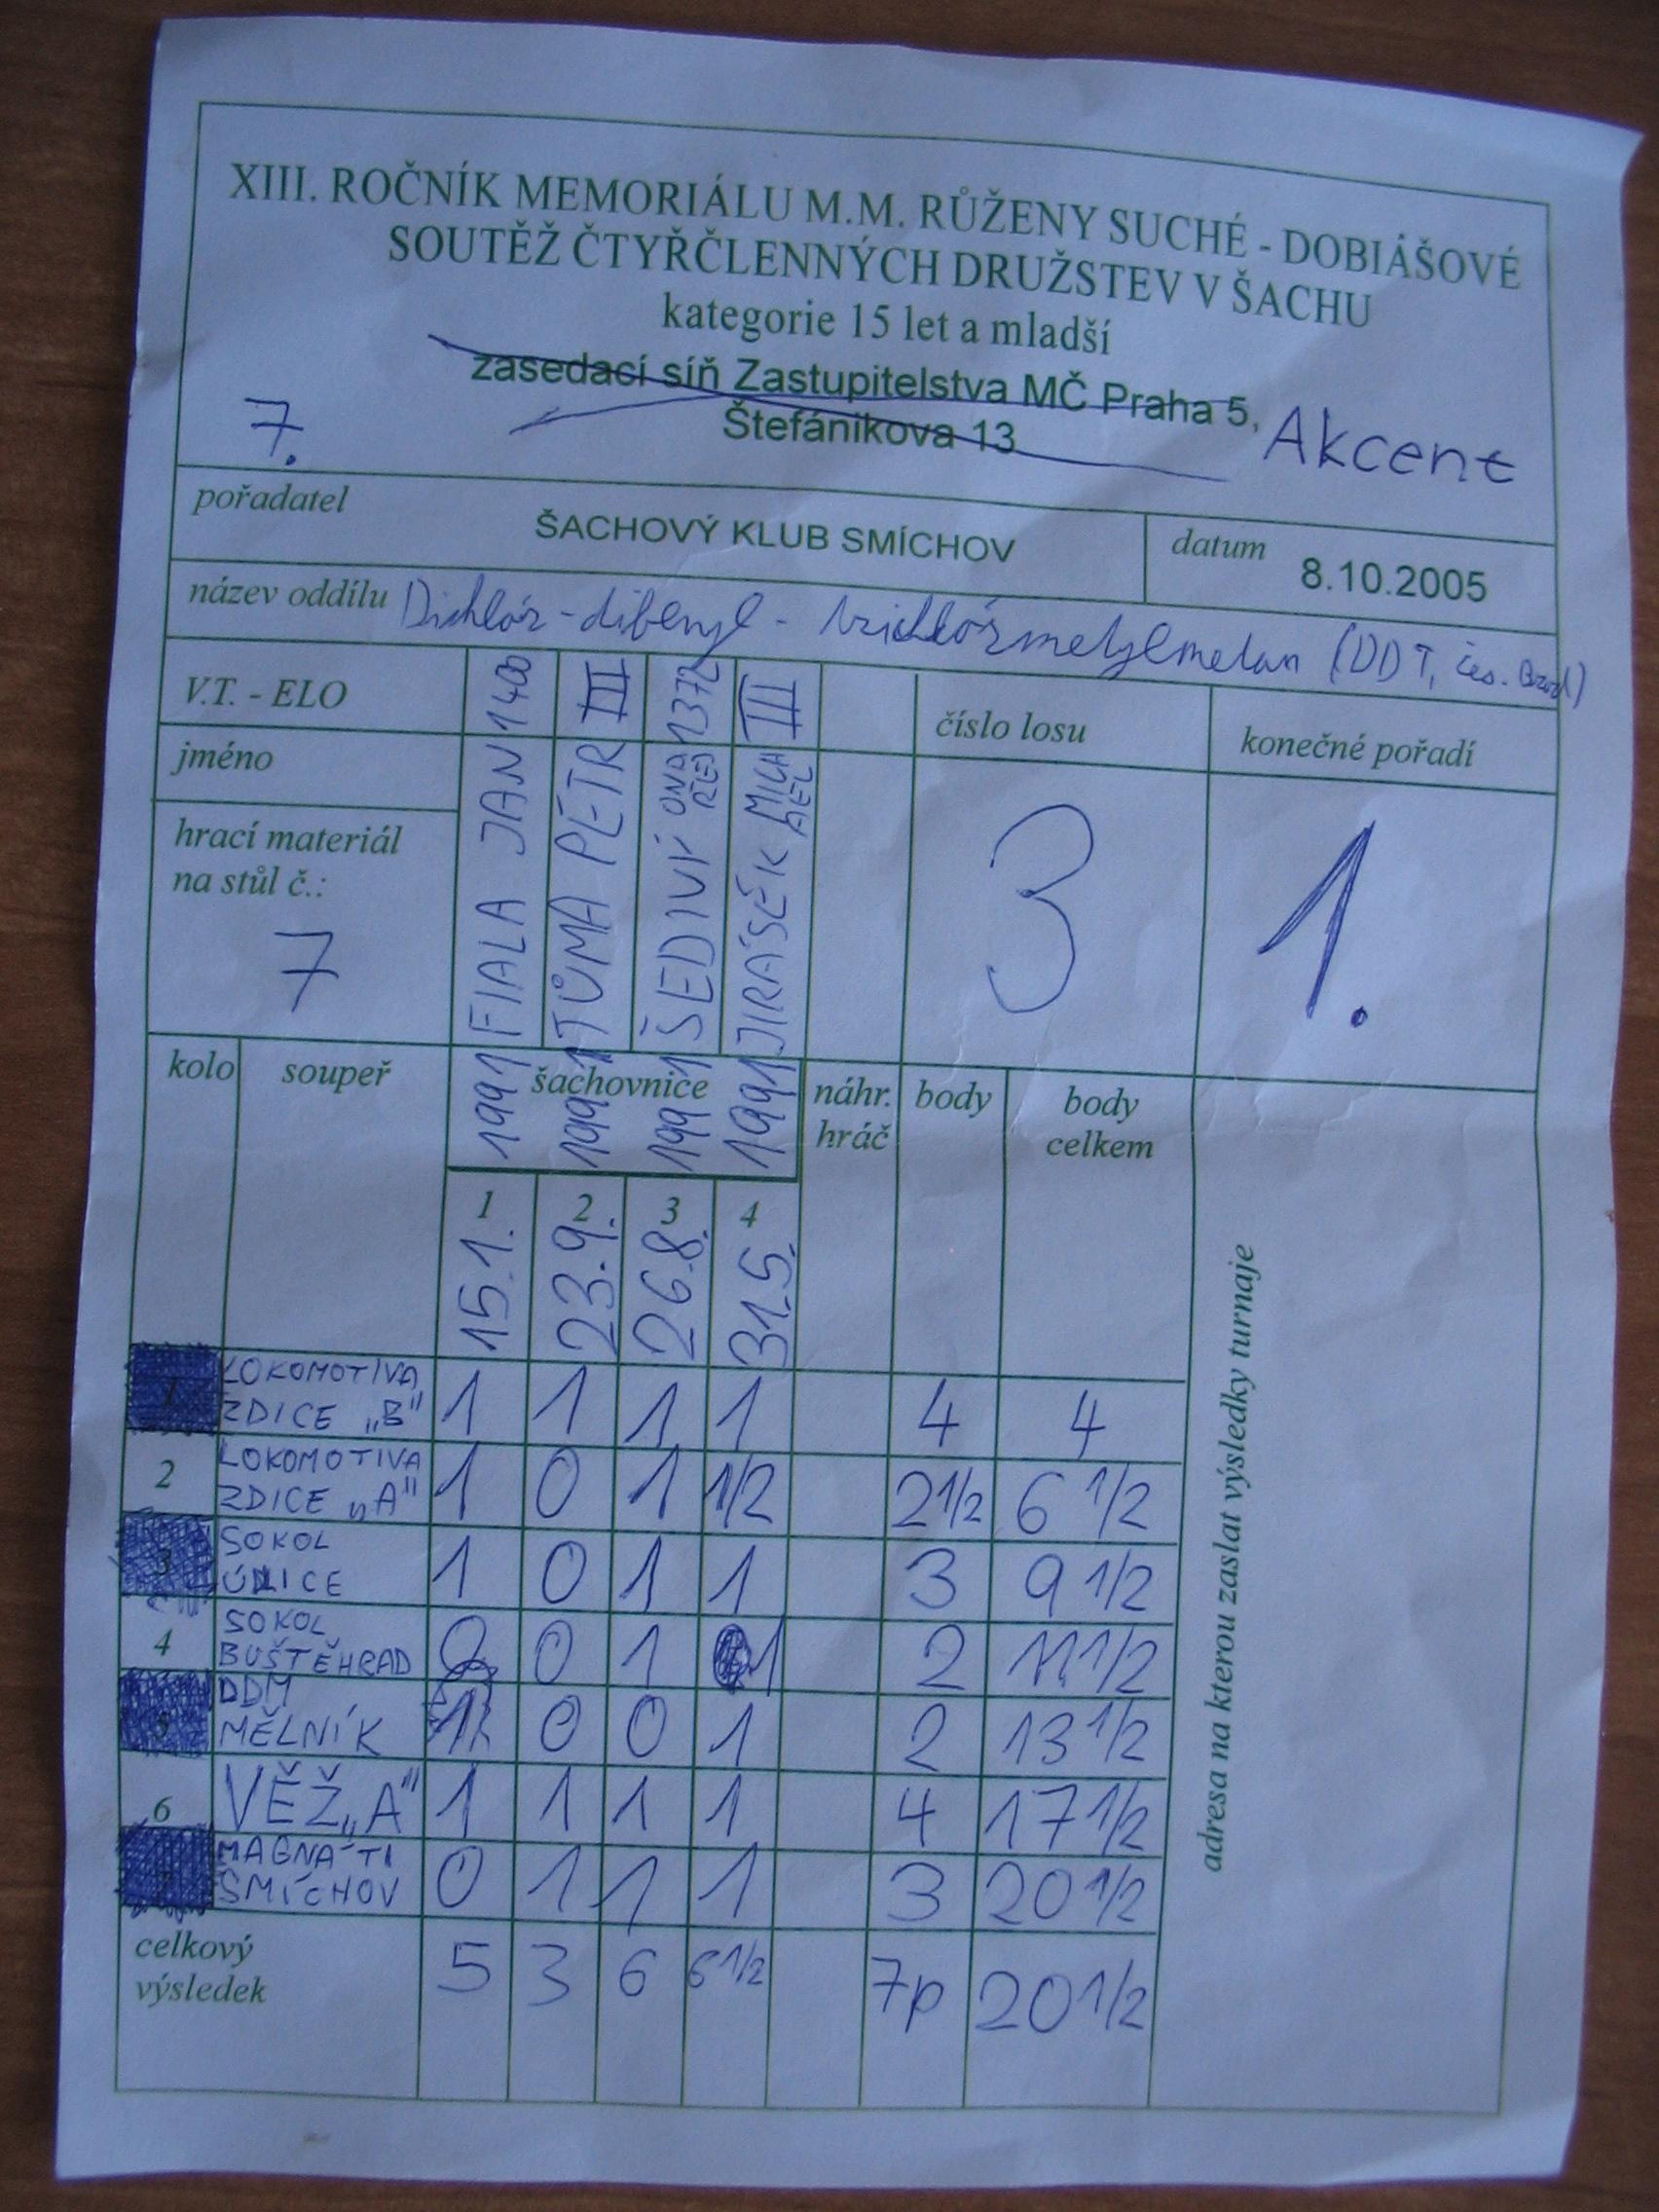 XIII. ROČNÍK MEMORIÁLU M.M. RŮŽENY SUCHÉ - DOBIÁŠOVÉ
SOUTĚŽ ČTYŘČLENNÝCH DRUŽSTEV V ŠACHU
kategorie 15 let a mladší
zasedací síň Zastupitelstva MČ Praha 5,
Štefánikova 13
Akcent
7.
pořadatel
ŠACHOVÝ KLUB SMÍCHOV
datum 8.10.2005
název oddílu Dichlór-difenyl-trichlórmetylmetan (DDT, Čes. Brod)
V.T. - ELO 1400 III 1372 III
číslo losu
konečné pořadí
jméno
FIALA JAN
TŮMA PETR
ŠEDIVÝ ONDŘEJ
JIRÁSEK MICHAEL
hrací materiál
na stůl č.:
7
3
1.
kolo soupeř šachovnice náhr. hráč body body celkem
1991 1991 1991 1991
1 2 3 4
15.1. 23.9. 26.8. 31.5.
adresa na kterou zaslat výsledky turnaje
1 LOKOMOTIVA ZDICE „B" 1 1 1 1 4 4
2 LOKOMOTIVA ZDICE „A" 1 0 1 1/2 2 1/2 6 1/2
3 SOKOL ÚNICE 1 0 1 1 3 9 1/2
4 SOKOL BUŠTĚHRAD 0 0 1 1 2 11 1/2
5 DDM MĚLNÍK 1 0 0 1 2 13 1/2
6 VĚŽ „A" 1 1 1 1 4 17 1/2
MAGNÁTI SMÍCHOV 0 1 1 1 3 20 1/2
celkový
výsledek 5 3 6 6 1/2 7p 20 1/2